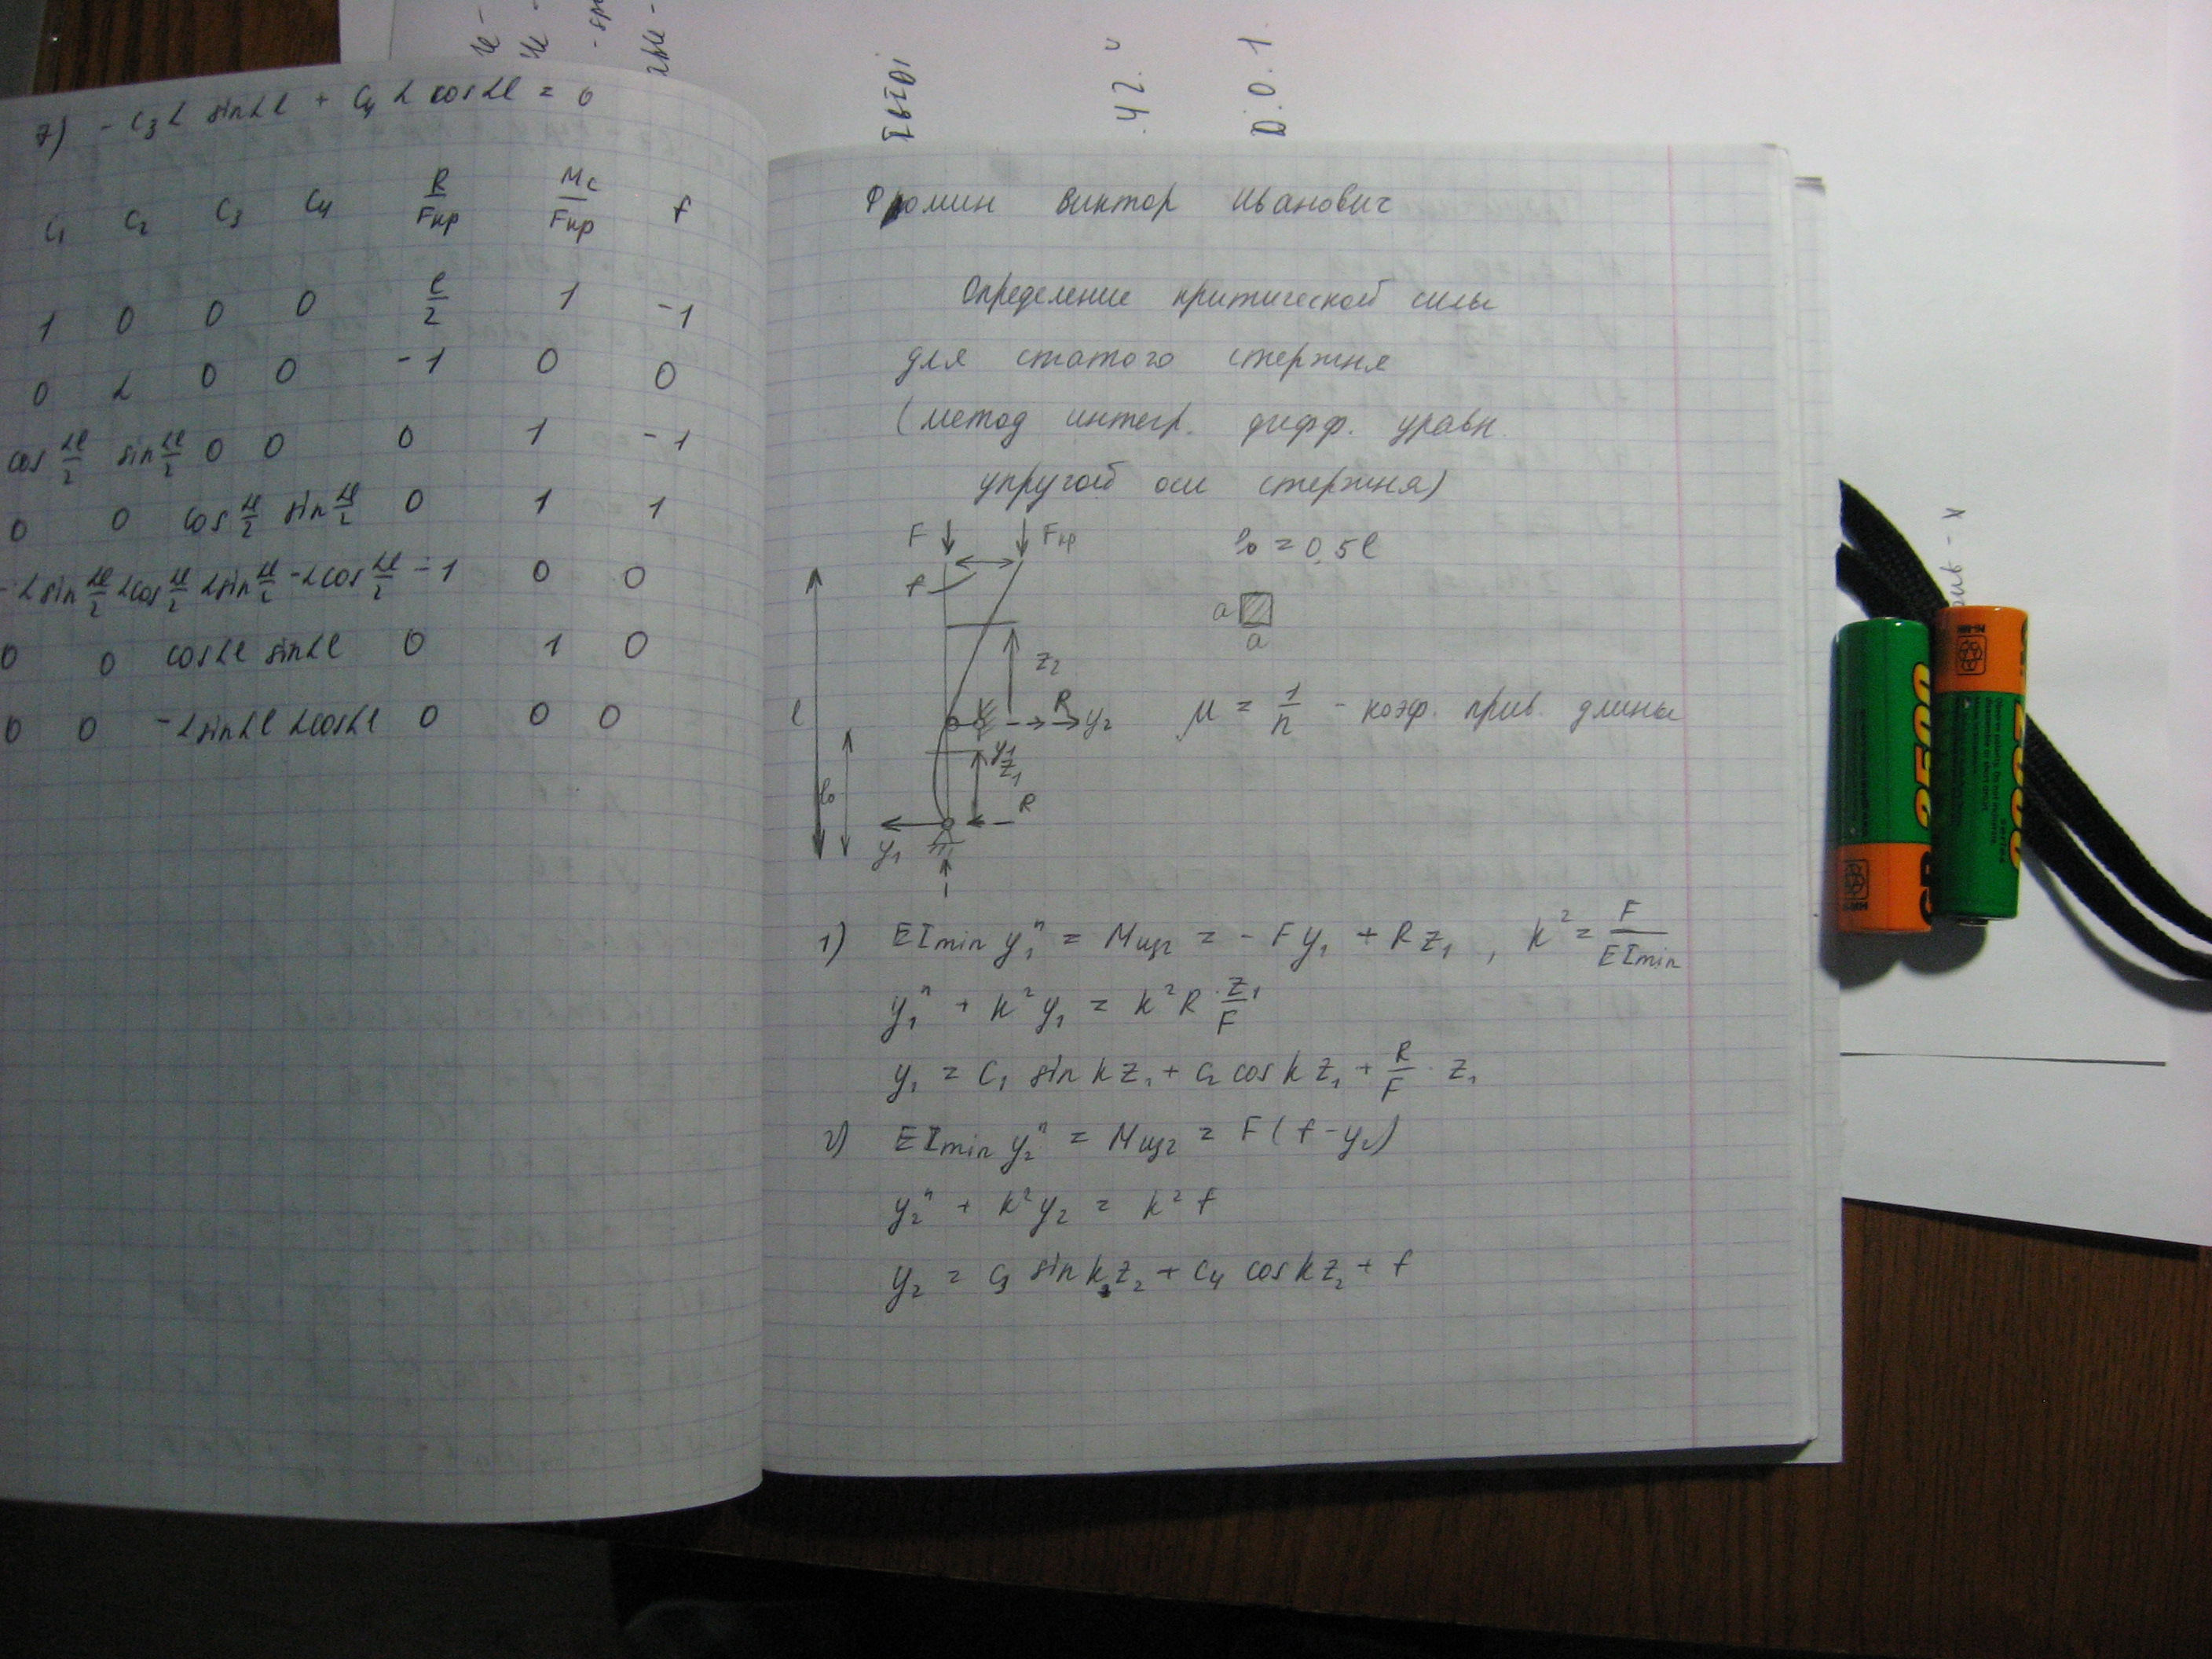 7) - C₃α sinαl + C₄ α cosαl = 0
C₁ C₂ C₃ C₄ R/Fкр Mc/Fкр f
1 0 0 0 l/2 1 -1
0 α 0 0 -1 0 0
cos αl/2 sin αl/2 0 0 0 1 -1
0 0 cos αl/2 sin αl/2 0 1 1
-αsin αl/2 αcos αl/2 αsin αl/2 -αcos αl/2 -1 0 0
0 0 cosαl sinαl 0 1 0
0 0 -αsinαl αcosαl 0 0 0
Фромин Виктор Иванович
Определение критической силы
для сжатого стержня
(метод интегр. дифф. уравн.
упругой оси стержня)
F Fкр l₀ = 0,5l
f
a
a
z₂
l R y₂ μ = 1/n - коэф. прив. длины
z₁
l₀ R
y₁
1) EImin y₁" = Mизг = - Fy₁ + Rz₁ , k² = F/EImin
y₁" + k²y₁ = k²R · z₁/F
y₁ = C₁ sin kz₁ + C₂ cos kz₁ + R/F · z₁
2) EImin y₂" = Mизг = F(f-y₂)
y₂" + k²y₂ = k² f
y₂ = C₃ sin kz₂ + C₄ cos kz₂ + f
GP 2500
2500